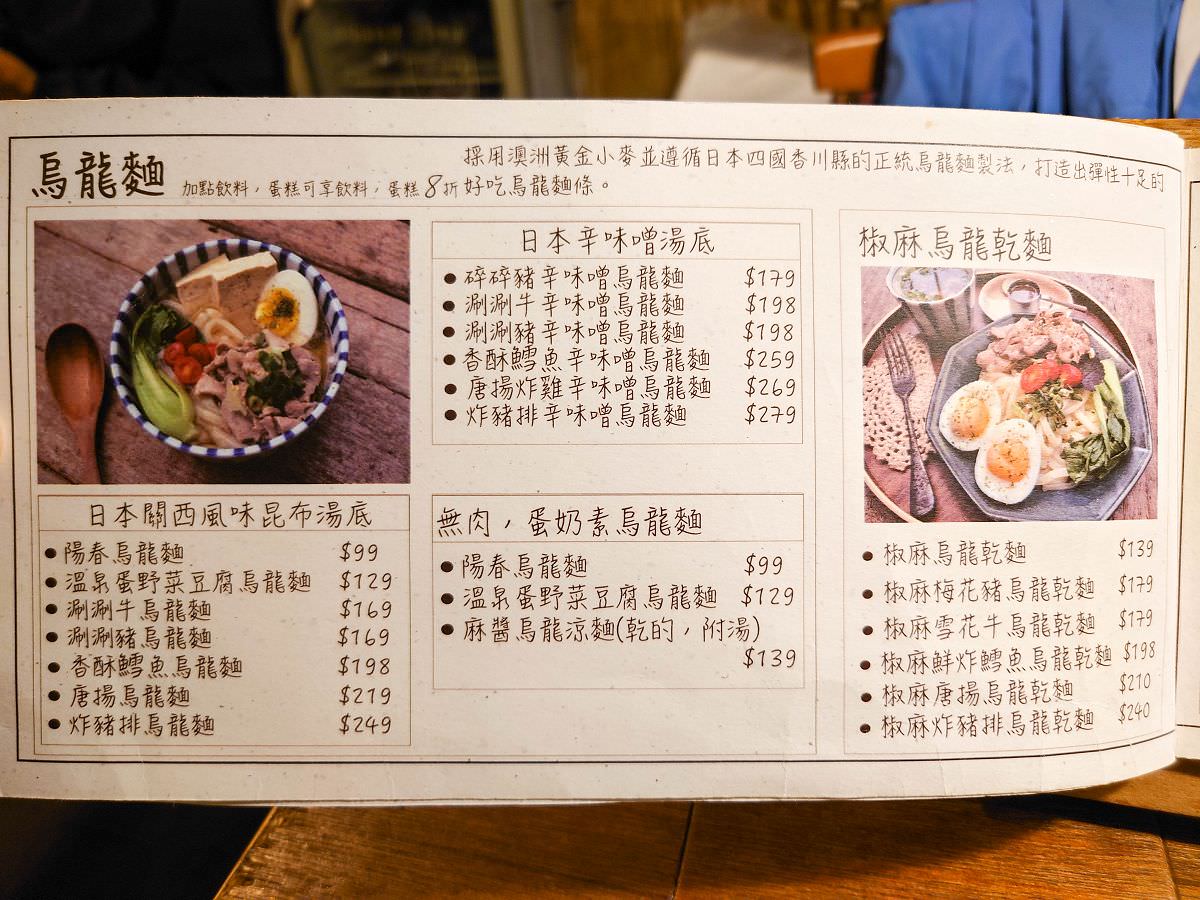 烏龍麵
採用澳洲黃金小麥並遵循日本四國香川縣的正統烏龍麵製法，打造出彈性十足的
加點飲料，蛋糕可享飲料，蛋糕8折 好吃烏龍麵條。
日本關西風味昆布湯底
陽春烏龍麵 $99
溫泉蛋野菜豆腐烏龍麵 $129
涮涮牛烏龍麵 $169
涮涮豬烏龍麵 $169
香酥鱈魚烏龍麵 $198
唐揚烏龍麵 $219
炸豬排烏龍麵 $249
日本辛味噌湯底
碎碎豬辛味噌烏龍麵 $179
涮涮牛辛味噌烏龍麵 $198
涮涮豬辛味噌烏龍麵 $198
香酥鱈魚辛味噌烏龍麵 $259
唐揚炸雞辛味噌烏龍麵 $269
炸豬排辛味噌烏龍麵 $279
無肉，蛋奶素烏龍麵
陽春烏龍麵 $99
溫泉蛋野菜豆腐烏龍麵 $129
麻醬烏龍涼麵(乾的，附湯)
$139
椒麻烏龍乾麵
椒麻烏龍乾麵 $139
椒麻梅花豬烏龍乾麵 $179
椒麻雪花牛烏龍乾麵 $179
椒麻鮮炸鱈魚烏龍乾麵 $198
椒麻唐揚烏龍乾麵 $210
椒麻炸豬排烏龍乾麵 $240